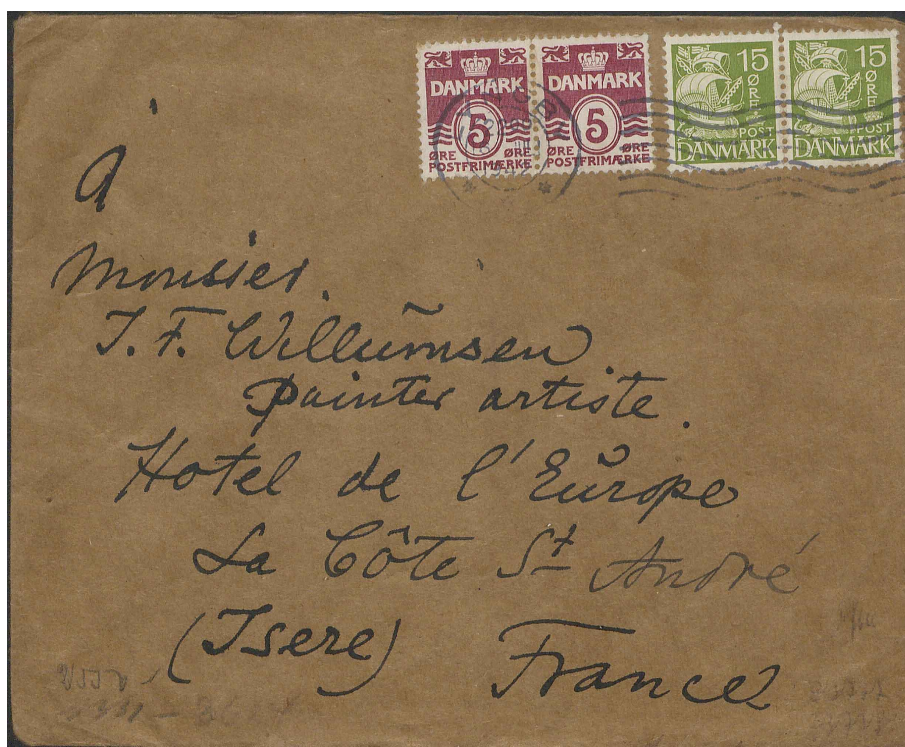 DANMARK 5 ØRE ØRE POSTFRIMÆRKE
DANMARK 5 ØRE ØRE POSTFRIMÆRKE
15 ØRE POST DANMARK
15 ØRE POST DANMARK
1942
A
Monsier
J. F. Willumsen
painter artiste.
Hotel de l'Europe
La Côte St André
(Isere) France